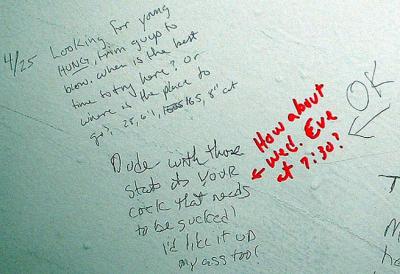 4/25 Looking for young
HUNG, trim guys to
blow. when is the best
time to try here? or
where is the place to
go?, 28, 6'1, 165, 8" cut
Dude with those
stats its YOUR
cock that needs
to be sucked!
I'd like it up
my ass too!
How about
Wed. Eve
at 7:30?
OK